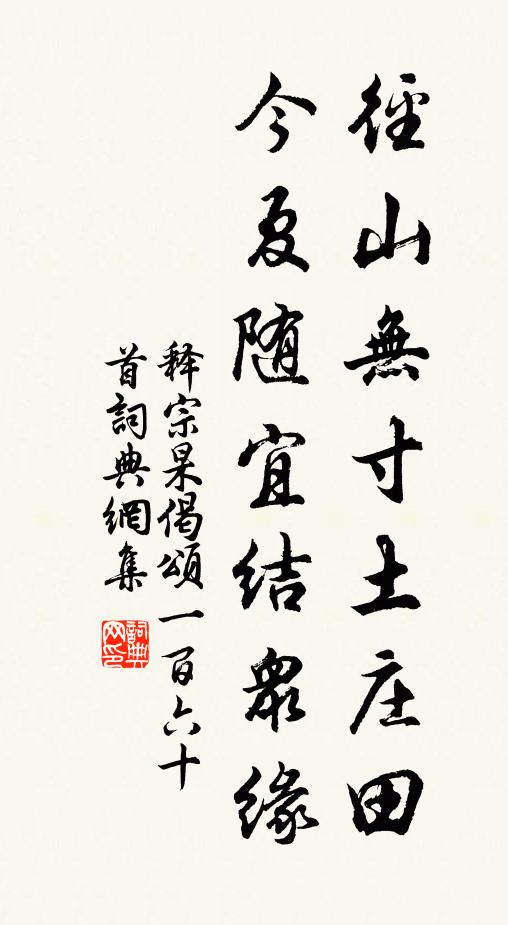 徑山無寸土庄田
今夏随宜结眾緣
释宗杲偈頌一百六十
首詞典網集
詞典网印